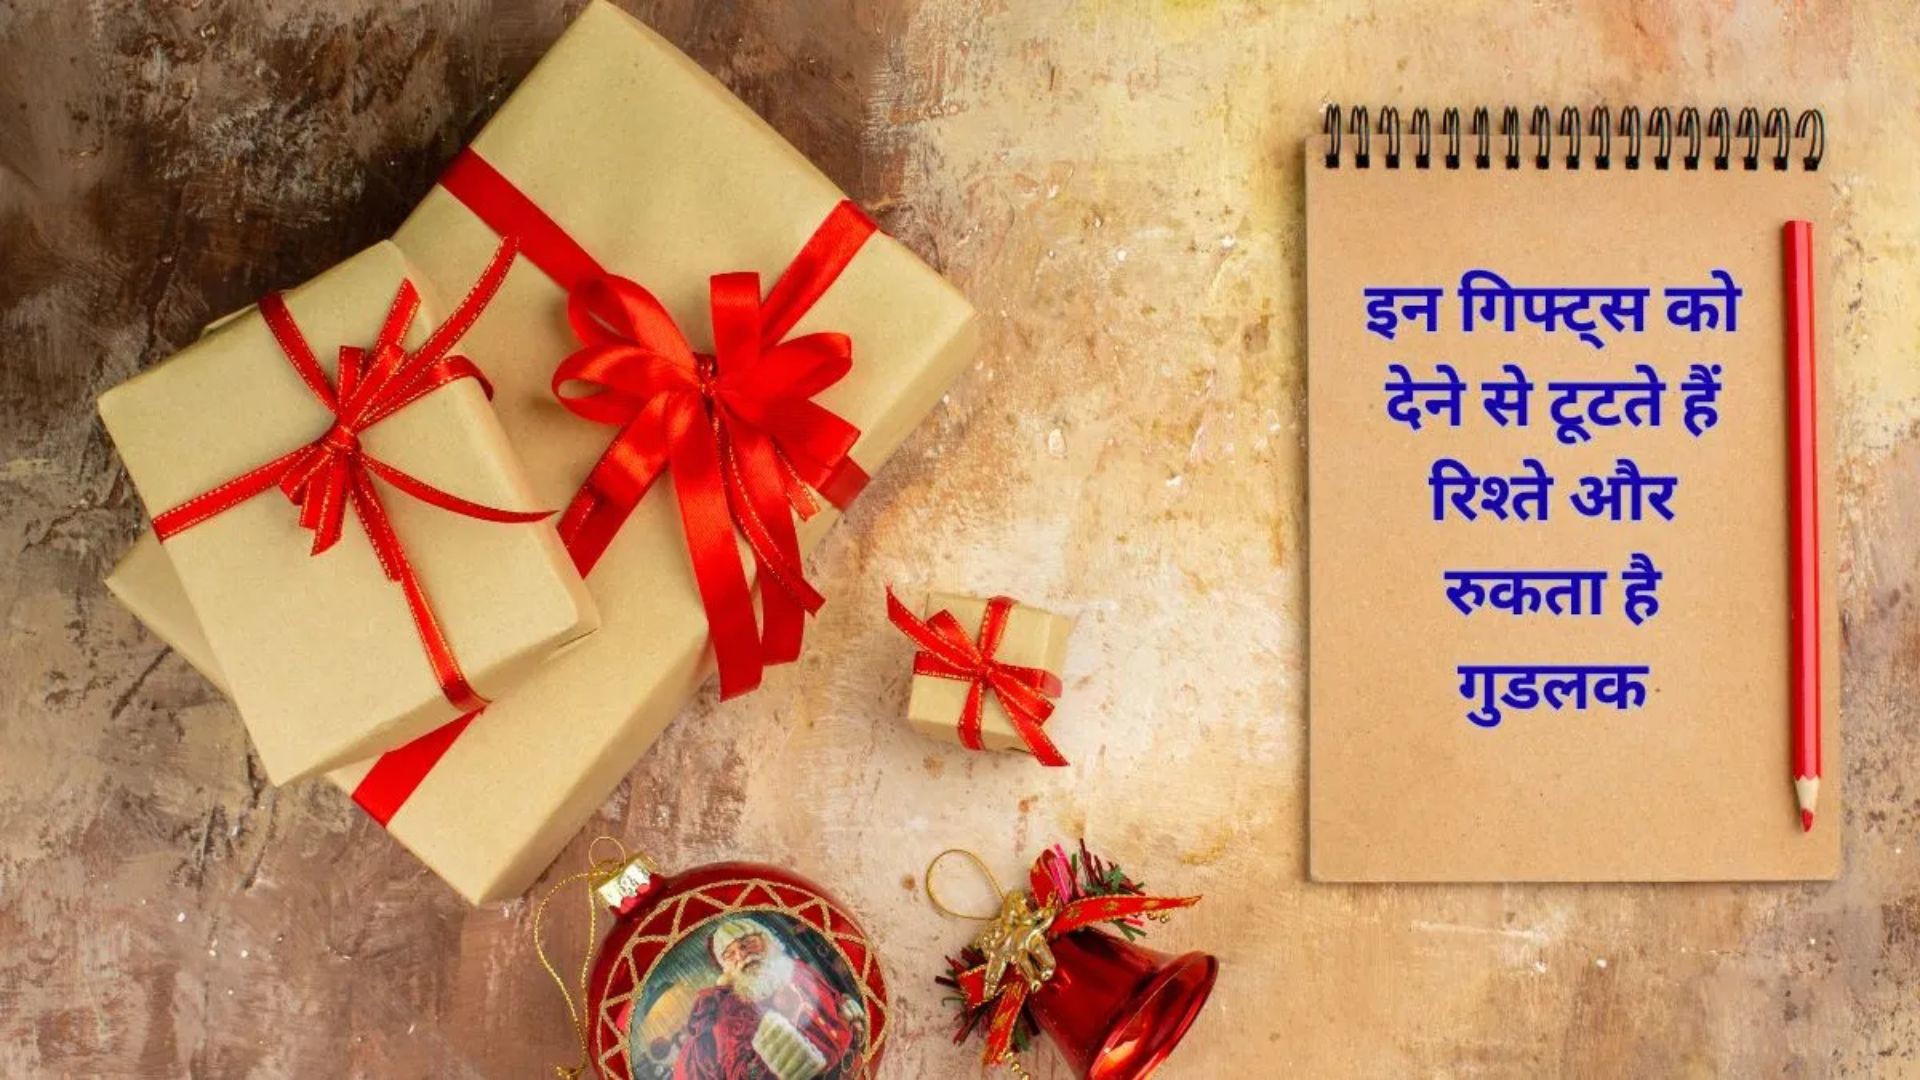 इन गिफ्ट्स को
देने से टूटते हैं
रिश्ते और
रुकता है
गुडलक